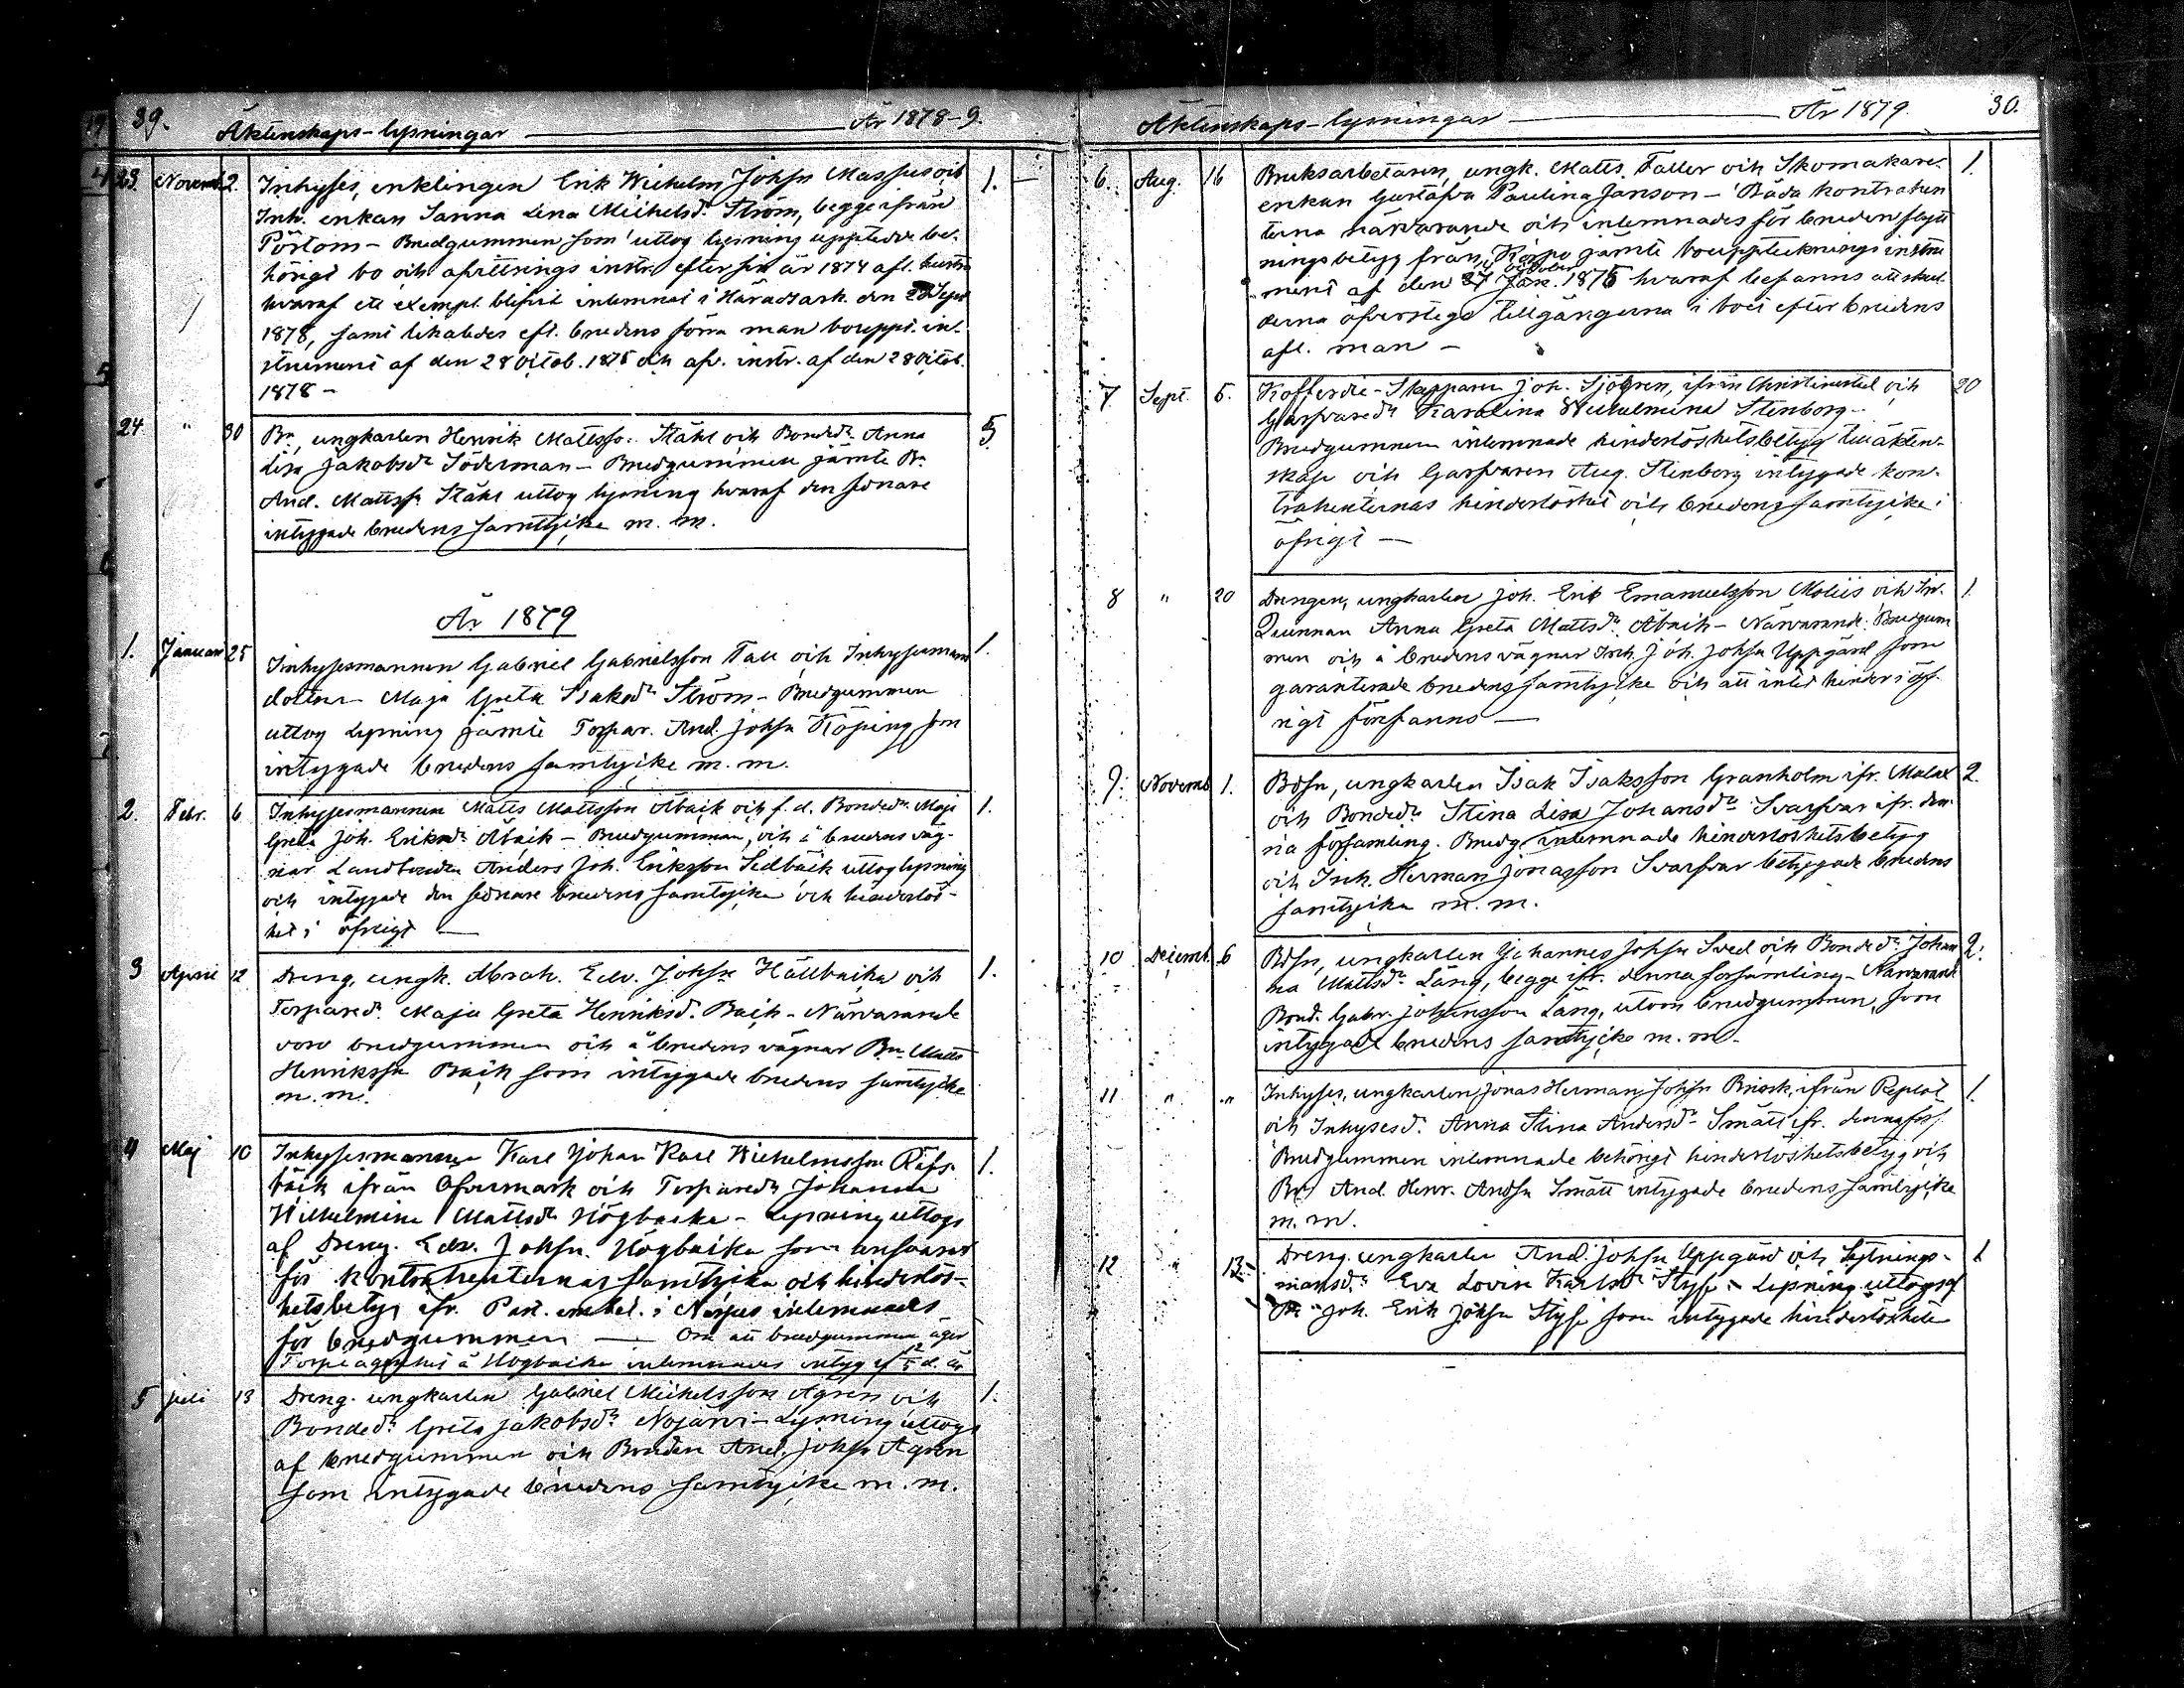 39. Äktenskaps-lysningar År 1878-9.
23. Novemb. 2. Inhyses, enklingen Erik Wilhelm Johsn Massus och 1.
Inh. enkan Sanna Lena Michelsdr Ström, begge ifrån
Pörtom - Brudgummen som uttog lysning uppteedde be-
hörigt bo och afvittrings instr. efter sin år 1874 afl. hustru
hvaraf ett exempl. blifvit inlemnat i Häradsark. den Sept
1878, samt likaledes eft. brudens förra man bouppt. in-
strument af den 28 Octob. 1875 och afv. instr. af den 28 Octob.
1878 -
24. " 30 Bn, ungkarlen Henrik Mattsson Ståhl och Bondedr Anna 5
Lisa Jakobsdr Söderman - Brudgummen jämte Bn
And. Mattss. Ståhl uttog lysning hvaraf den sednare
intygade brudens samtycke m. m.
År 1879
1. Januari 25 Inhysesmannen Gabriel Gabrielsson Tall och Inhysesmans 1.
dotter Maja Greta Isaksdr Ström - Brudgummen
uttog Lysning jämte Torpar. And. Johsn Köping som
intygade brudens samtycke m. m.
2. Febr. 6 Inhysesmannen Matts Mattsson Åback och f. d. Bondedr Maja 1.
Greta Joh. Eriksdr Åback - Brudgumman, och å brudens väg-
nar Landbonden Anders Joh. Eriksson Sedbäck uttog lysning
och intygade den sednare brudens samtycke och hinderlös-
het i öfrigt -
3 April 12 Dreng, ungk. Abrah. Edv. Johsn Hällbacka och 1.
Torparedr. Maja Greta Henriksdr. Back - Närvarande
voro brudgummen och å brudens vägnar Bn Matts
Henrikssn Back som intygade brudens samtycke
m. m.
4 Maj 10 Inhysesmannen Karl Johan Karl Wilhelmsson Räfs- 1.
bäck ifrån Öfvermark och Torparedr Johanna
Wilhelmina Mattsdr Högbacka - Lysning uttogs
af Dreng. Edv. Johsn. Högbacka som ansvarar
för kontrahenternas samtycke och hinderlös-
hetsbetyg ifr. Past. embet. i Närpes inlemnades
för brudgummen - Om att brudgummen äger
Torplägenhet å Högbacka inlemnades intyg af d. år
5 Juli 13 Dreng. ungkarlen Gabriel Michelsson Ågren och 1.
Bondedr. Greta Jakobsdr. Nojärvi - Lysning uttogs
af brudgummen och Bonden And. Johsn Ågren
som intygade brudens samtycke m. m.
Äktenskaps-lysningar År 1879. 30.
6. Aug. 16 Bruksarbetaren, ungk. Matts Faller och Skomakare- 1.
enkan Gustafva Paulina Janson - Båda kontrahen
terna närvarande och inlemnades för bruden flytt
ningsbetyg från Korpo jämte bouppteknings instru
ment af den October 1876 hvaraf befanns att skul-
derna öfverstego tillgångarna i boet efter brudens
afl. man -
7. Sept. 5. Kofferdie-Skepparen Joh. Sjögren, ifrån Christinestad och 20
Garfvaredr Karolina Wilhelmina Stenborg -
Brudgummen inlemnade hinderlöshetsbetyg till äkten-
skap och Garfvaren Aug. Stenborg intygade kon-
trahenternas hinderlöshet och brudens samtycke i
öfrigt -
8 " 20 Drengen, ungkarlen Joh. Erik Emanuelsson Moliis och In- 1.
Qvinnan Anna Greta Mattsdr. Åback - Närvarande: Brudgum
men och å brudens vägnar Inh. Joh. Johsn Uppgård som
garanterade brudens samtycke och att intet hinder i öf-
rigt förefanns -
9. Novemb 1. Bdsn, ungkarlen Isak Isaksson Granholm ifr. Malax 2.
och Bondedr Stina Lisa Johansdr Svarfvar ifr. den-
na församling. Brudg. inlemnade hinderlöshetsbetyg
och Inh. Herman Jonasson Svarfvar betygade brudens
samtycke m. m.
10 Decemb. 6 Bdsn, ungkarlen Johannes Johsn Sved och Bondedr. Johan 2.
na Mattsdr. Lång, begge ifr. denna församling - Närvarande
Bond. Gabr. Johansson Lång, utom brudgummen, som
intygade brudens samtycke m. m.
11 " " Inhyses, ungkarlen Jonas Herman Johsn Brask, ifrån Replot 1.
och Inhysesdr. Anna Stina Andersdr. Smått ifr. denna förs.
Brudgummen inlemnade behörigt hinderlöshetsbetyg och
Bn And. Henr. Andsn Smått intygade brudens samtycke
m. m.
12 " 13. Dreng. ungkarlen And. Johsn Uppgård och Sytnings- 1
mansdr. Eva Lovisa Karlsdr Styf - Lysning uttogs af
Bn Joh. Erik Johsn Styf som intygade hinderlösheten